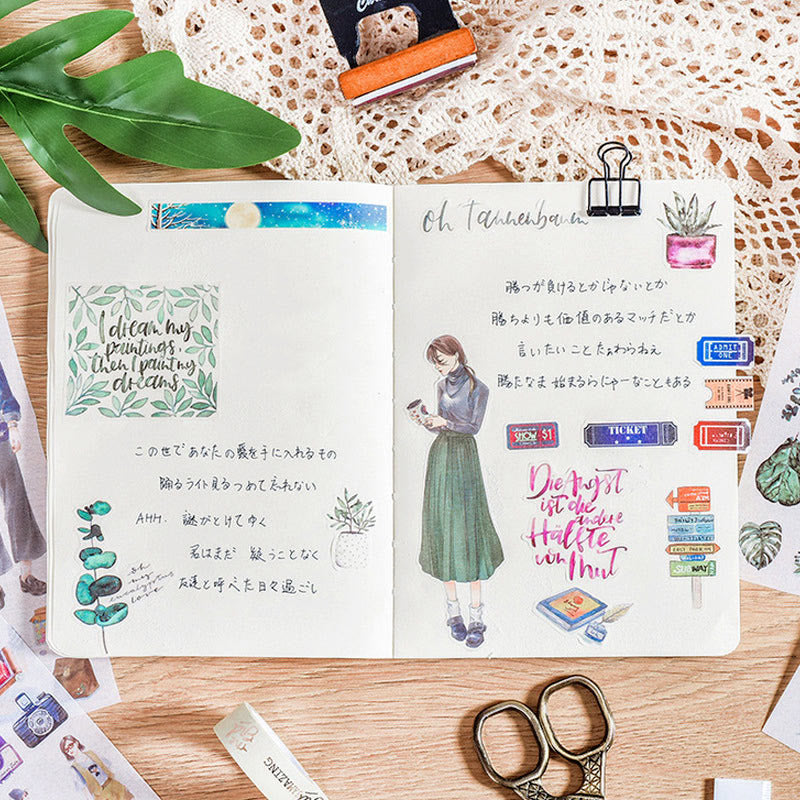 I dream my
paintings,
then I paint my
dreams
この世であなたの愛を手に入れるもの
踊るライト見つめて忘れない
AHH. 謎がとけてゆく
君はまだ 疑うことなく
友達と呼べた日々過ごし
oh
my
eucalyptus
love
oh Tannenbaum
勝つか負けるとかじゃないとか
勝ちよりも価値のあるマッチだとか
言いたいことたぁわらねえ
勝たなま始まるらにゃーなこともある
ADMIT
ONE
SHOW $1
TICKET
Die Angst
ist die
andere
Hälfte
von Mut
SUBWAY
AMAZING